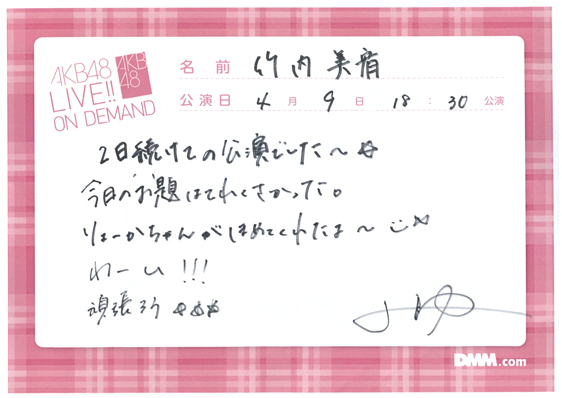 AKB48
LIVE!!
ON DEMAND
AKB
48
名前 竹内美宥
公演日 4月9日 18:30公演
2日続けての公演でした〜☆
今日のお題はてれくさかった。
りょーかちゃんがほめてくれたよ〜
わーい!!!
頑張ろう☆☆☆
DMM.com